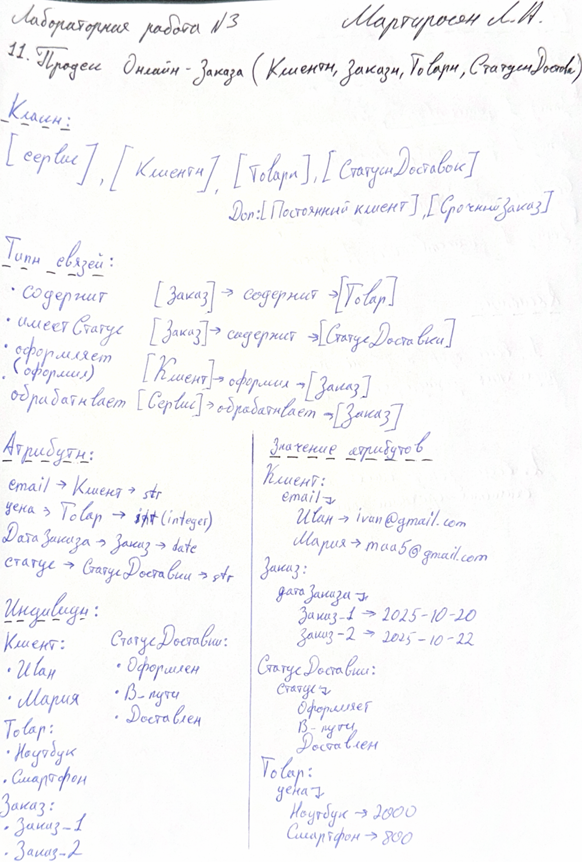 Лабораторная работа №3 Мартиросян Л.А.
11. Процесс Онлайн-Заказа (Клиенты, Заказы, Товары, СтатусыДоставки)
Классы:
[сервис], [Клиенты], [Товары], [СтатусыДоставок]
Доп:[Постоянный клиент], [СрочныйЗаказ]
Типы связей:
• содержит [Заказ] → содержит → [Товар]
• имеет Статус [Заказ] → содержит → [СтатусДоставки]
• оформляет
(оформил) [Клиент] → оформил → [Заказ]
• обрабатывает [Сервис] → обрабатывает → [Заказ]
Атрибуты:
email → Клиент → str
цена → Товар → int (integer)
ДатаЗаказа → Заказ → date
статус → СтатусДоставки → str
Индивиды:
Клиент:
• Иван
• Мария
Товар:
• Ноутбук
• Смартфон
Заказ:
• Заказ_1
• Заказ_2
СтатусДоставки:
• Оформлен
• В_пути
• Доставлен
Значение атрибутов
Клиент:
email ↴
Иван → ivan@gmail.com
Мария → maa5@gmail.com
Заказ:
датаЗаказа ↴
Заказ_1 → 2025-10-20
Заказ_2 → 2025-10-22
СтатусДоставки:
статус ↴
Оформляет
В_пути
Доставлен
Товар:
цена ↴
Ноутбук → 2000
Смартфон → 800